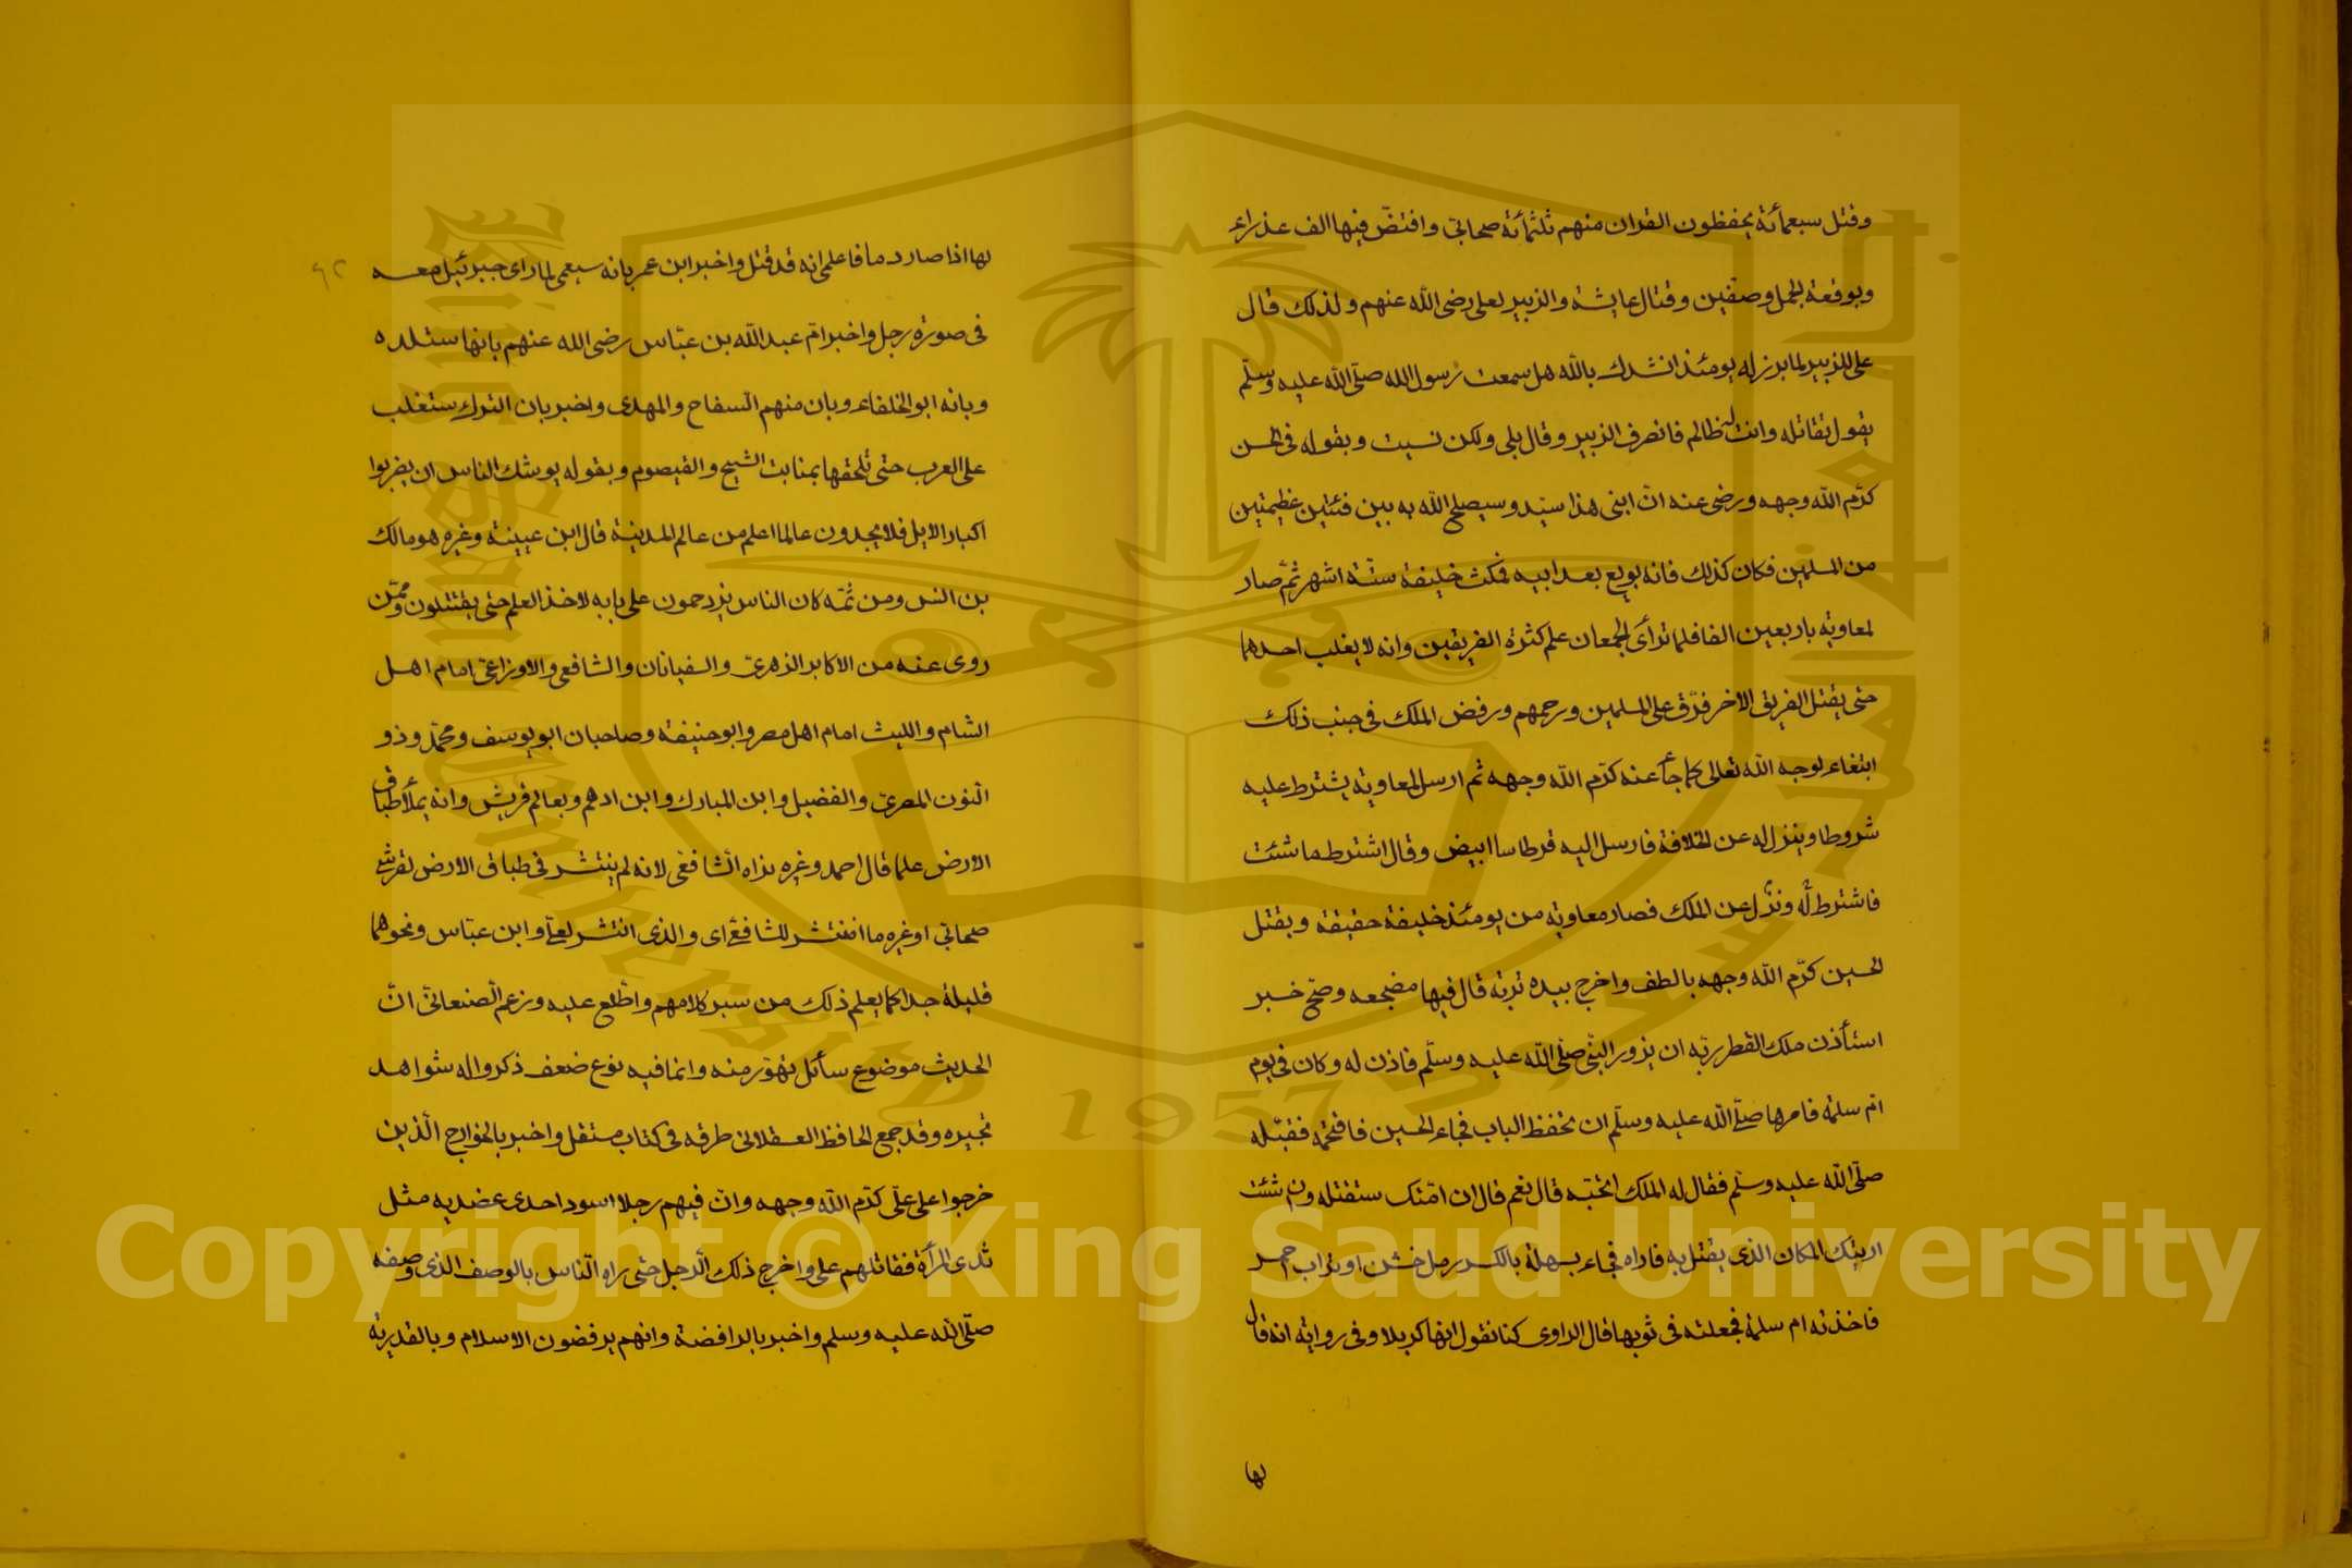 وقتل سبعمأئة يحفظون القران منهم ثلثمأئة صحابي وافتضّ فيها الف عذراء
وبوقعة الجمل وصفين وقتال عايشة والزبير لعلى رضى الله عنهم ولذلك قال
على للزبير لما برز له يومئذ انشدك بالله هل سمعت رسول الله صلّى الله عليه وسلّم
يقول تقاتله وانت له ظالم فانصرف الزبير وقال بلى ولكن نسيت وبقوله فى الحسن
كرّم الله وجهه ورضى عنه انّ ابنى هذا سيّد وسيصلح الله به بين فئتين عظيمتين
من المسلمين فكان كذلك فانه بويع بعد ابيه فمكث خليفة ستّة اشهر ثمّ صار
لمعاوية باربعين الفا فلما ترأى الجمعان علم كثرة الفريقين وانه لا يغلب احدهما
حتى يقتل الفريق الاخر فرّق على المسلمين ورحمهم ورفض الملك فى جنب ذلك
ابتغاء لوجه الله تعالى كما جاء عنه كرّم الله وجهه ثم ارسل لمعاوية يشترط عليه
شروطا وينزل له عن الخلافة فارسل اليه قرطاسا ابيض وقال اشترط ما شئت
فاشترط له ونزل عن الملك فصار معاوية من يومئذ خليفة حقيقة وبقتل
الحسين كرّم الله وجهه بالطف واخرج بيده تربة قال فيها مضجعه وصحّ خبر
استأذن ملك القطر ربّه ان يزور النبّى صلّى الله عليه وسلّم فاذن له وكان فى يوم
امّ سلمة فامرها صلّى الله عليه وسلّم ان تحفظ الباب فجاء الحسين فافتحمه فقبّله
صلّى الله عليه وسلّم فقال له الملك اتحبّه قال نعم قال ان امّتك ستقتله وان شئت
اريتك المكان الذى يقتل به فاراه فجاء بسهلة بالكسر رمل خشن او تراب احمر
فاخذته ام سلمة فجعلته فى ثوبها قال الراوى كنا نقول انها كربلا وفى رواية انه قال
لها
٩٢
لها اذا صار دما فاعلمى انه قد قتل واخبر ابن عمر بانه سيعمى لما راى جبرئيل معه
فى صورة رجل واخبر امّ عبد الله بن عبّاس رضى الله عنهم بانها ستلده
وبانه ابو الخلفاء وبان منهم السفاح والمهدى واخبر بان الترك ستغلب
على العرب حتى تلحقها بمنابت الشيح والقيصوم وبقوله يوشك الناس ان يضربوا
اكباد الابل فلا يجدون عالما اعلم من عالم المدينة قال ابن عيينة وغيره هو مالك
بن انس ومن ثمّه كان الناس يزدحمون على بابه لاخذ العلم حتى يقتتلون وممّن
روى عنه من الاكابر الزهرىّ والسفيانان والشافعى والاوزاعى امام اهل
الشام والليث امام اهل مصر وابو حنيفة وصاحبان ابو يوسف ومحمّد وذو
النون المصرىّ والفضيل وابن المبارك وابن ادهم وبعالم قريش وانه يملأ طباق
الارض علما قال احمد وغيره نراه الشافعى لانه لم ينتشر فى طباق الارض لقرشى
صحابى او غيره ما انتشر للشافعى اى والذى انتشر لعلى وابن عبّاس ونحوهما
قليلة جدا كما يعلم ذلك من سبر كلامهم واطّلع عليه وزعم الصنعانىّ انّ
الحديث موضوع سأئل تهوّر منه وانما فيه نوع ضعف ذكروا له شواهد
تجبره وقد جمع الحافظ العسقلانى طرقه فى كتاب مستقل واخبر بالخوارج الّذين
خرجوا على علّى كرّم الله وجهه وانّ فيهم رجلا اسود احدى عضديه مثل
ثدى المرأة فقاتلهم على واخرج ذلك الرّجل حتى راه الناس بالوصف الذى وصفه
صلّى الله عليه وسلم واخبر بالرافضة وانهم يرفضون الاسلام وبالقدرية
King Saud University
جامعة الملك سعود
1957
Copyright © King Saud University